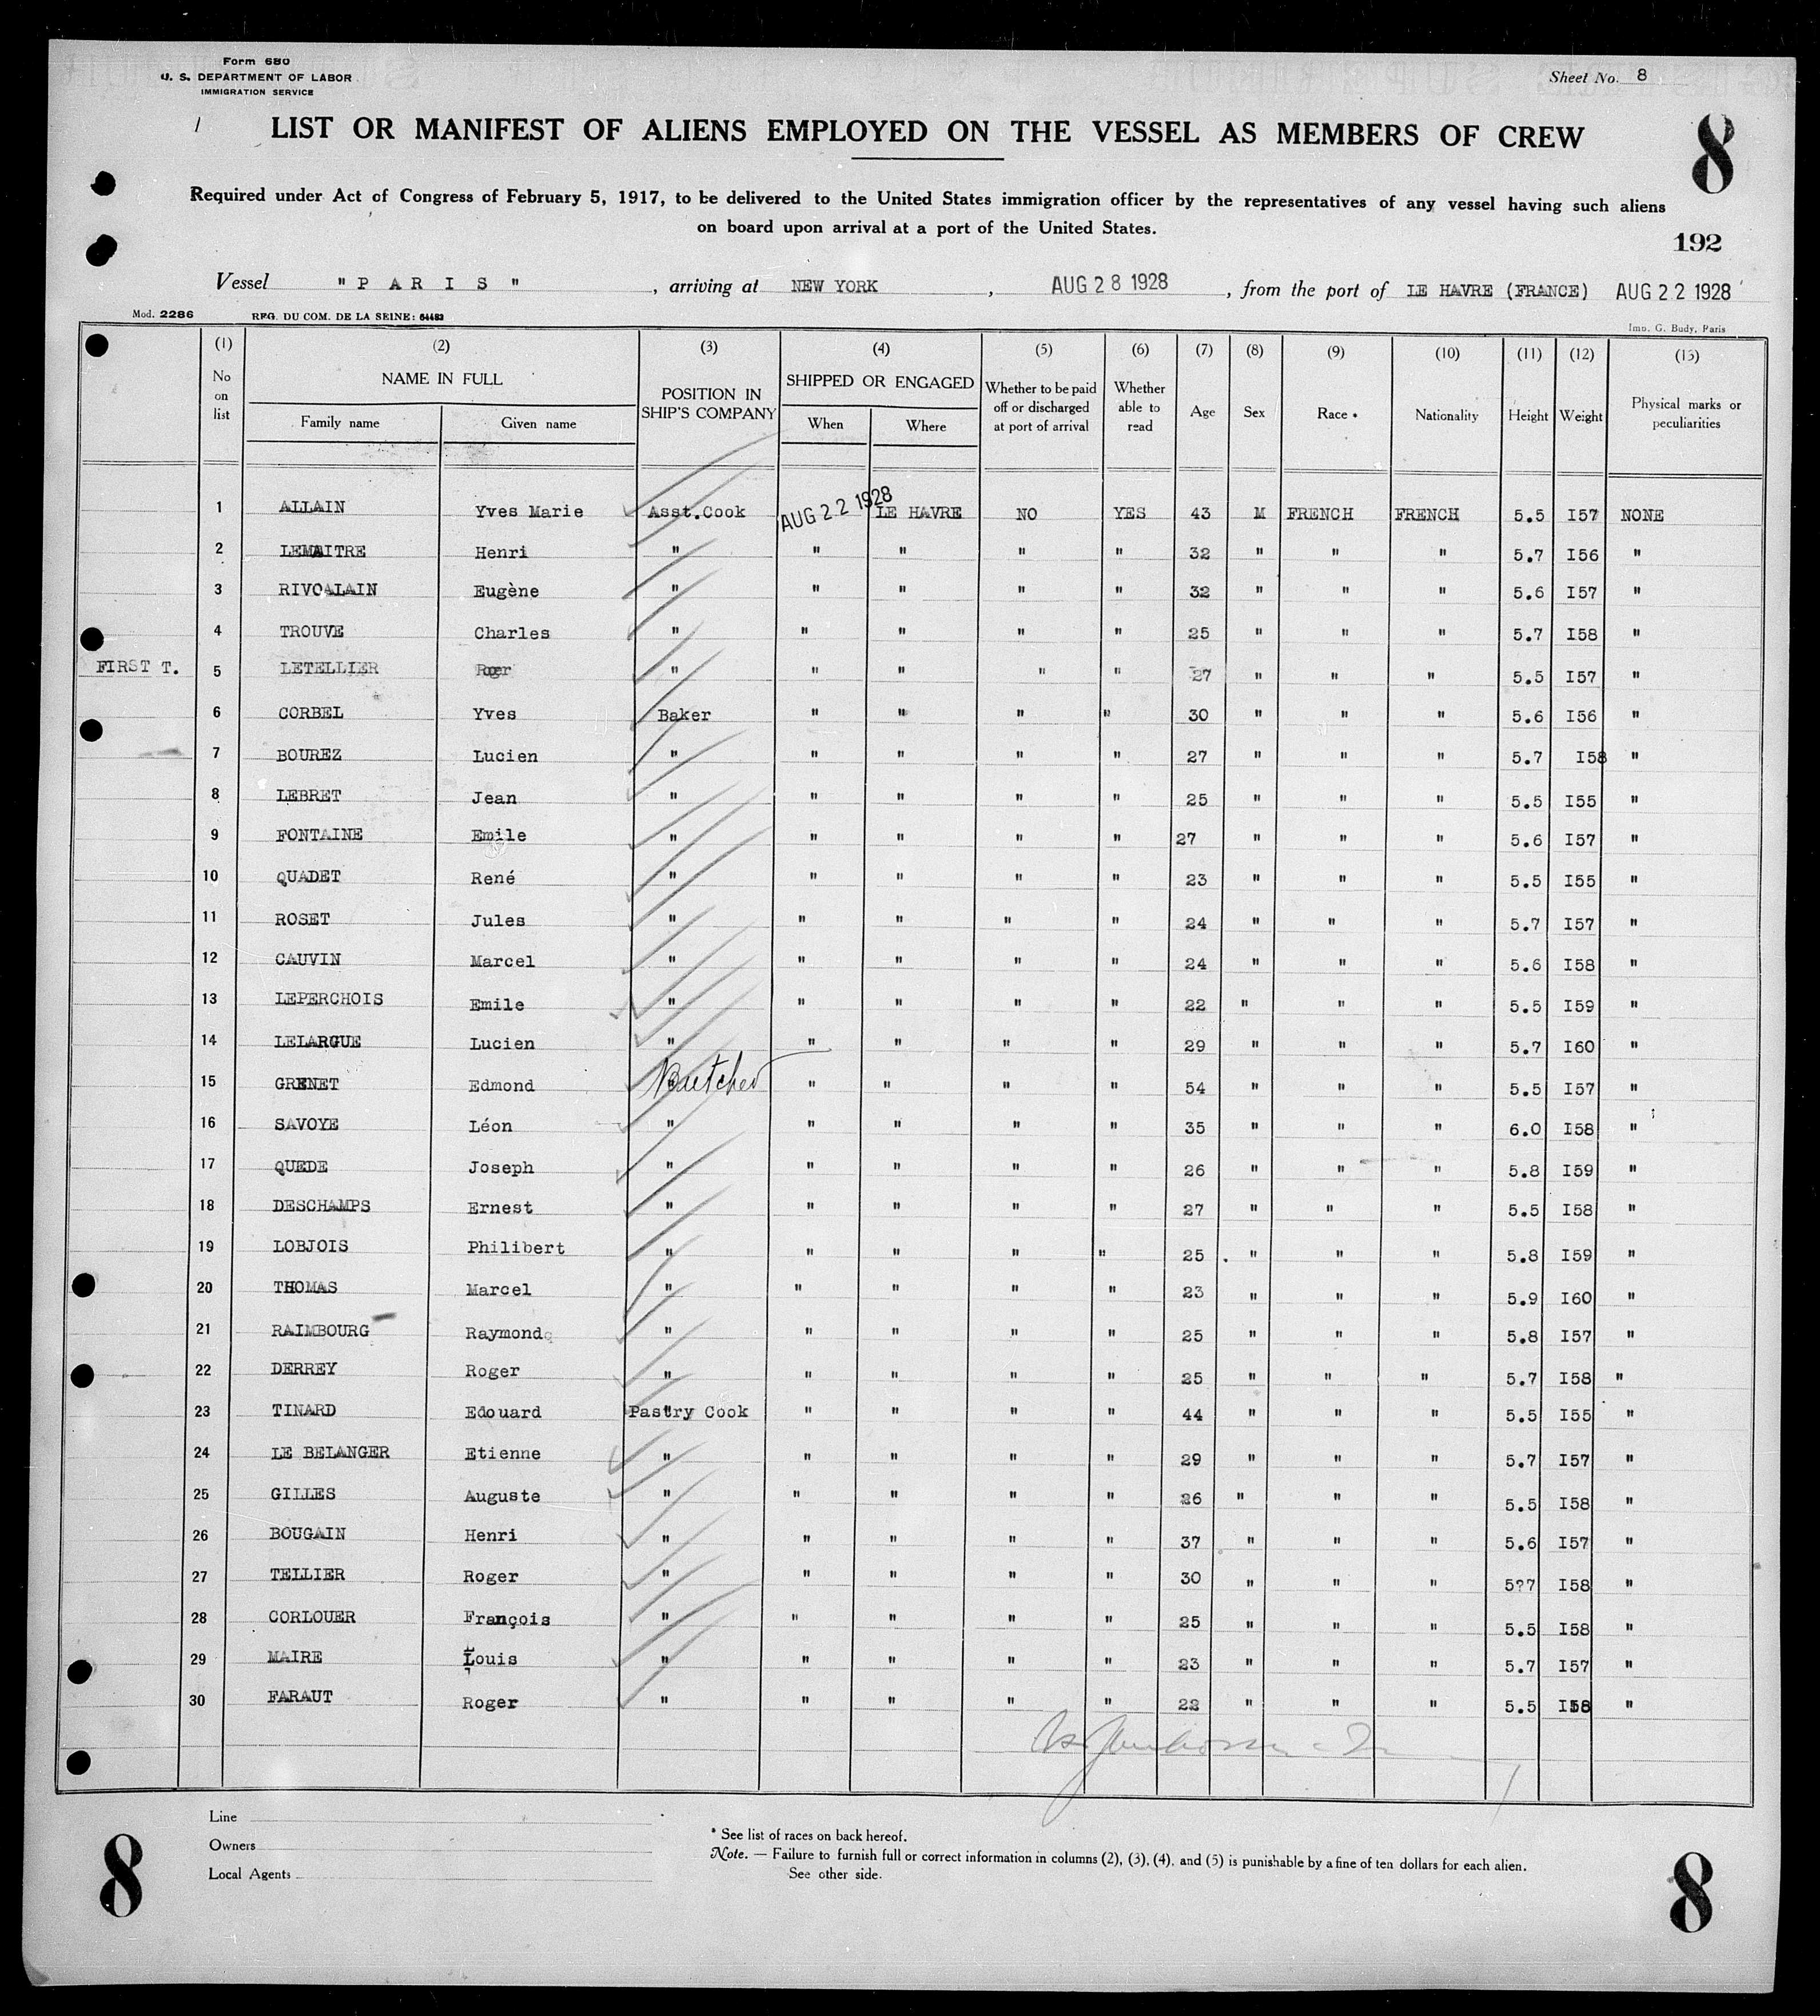 Form 680
U. S. DEPARTMENT OF LABOR
IMMIGRATION SERVICE
Sheet No. 8
8
LIST OR MANIFEST OF ALIENS EMPLOYED ON THE VESSEL AS MEMBERS OF CREW
Required under Act of Congress of February 5, 1917, to be delivered to the United States immigration officer by the representatives of any vessel having such aliens
on board upon arrival at a port of the United States.
192
Vessel " P A R I S ", arriving at NEW YORK, AUG 28 1928, from the port of LE HAVRE (FRANCE) AUG 22 1928
Mod. 2286 REG. DU COM. DE LA SEINE: 64482 Imp. G. Budy, Paris
(1) (2) (3) (4) (5) (6) (7) (8) (9) (10) (11) (12) (13)
No on list NAME IN FULL Family name Given name POSITION IN SHIP'S COMPANY SHIPPED OR ENGAGED When Where Whether to be paid off or discharged at port of arrival Whether able to read Age Sex Race * Nationality Height Weight Physical marks or peculiarities
1 ALLAIN Yves Marie Asst.Cook AUG 22 1928 LE HAVRE NO YES 43 M FRENCH FRENCH 5.5 I57 NONE
2 LEMAITRE Henri " " " " " 32 " " " 5.7 I56 "
3 RIVOALAIN Eugène " " " " " 32 " " " 5.6 I57 "
4 TROUVE Charles " " " " " 25 " " " 5.7 I58 "
FIRST T. 5 LETELLIER Roger " " " " " 27 " " " 5.5 I57 "
6 CORBEL Yves Baker " " " " 30 " " " 5.6 I56 "
7 BOUREZ Lucien " " " " " 27 " " " 5.7 I58 "
8 LEBRET Jean " " " " " 25 " " " 5.5 I55 "
9 FONTAINE Emile " " " " " 27 " " " 5.6 I57 "
10 QUADET René " " " " " 23 " " " 5.5 I55 "
11 ROSET Jules " " " " " 24 " " " 5.7 I57 "
12 CAUVIN Marcel " " " " " 24 " " " 5.6 I58 "
13 LEPERCHOIS Emile " " " " " 22 " " " 5.5 I59 "
14 LELARGUE Lucien " " " " " 29 " " " 5.7 I60 "
15 GRENET Edmond Butcher " " " " 54 " " " 5.5 I57 "
16 SAVOYE Léon " " " " " 35 " " " 6.0 I58 "
17 QUEDE Joseph " " " " " 26 " " " 5.8 I59 "
18 DESCHAMPS Ernest " " " " " 27 " " " 5.5 I58 "
19 LOBJOIS Philibert " " " " " 25 " " " 5.8 I59 "
20 THOMAS Marcel " " " " " 23 " " " 5.9 I60 "
21 RAIMBOURG Raymond " " " " " 25 " " " 5.8 I57 "
22 DERREY Roger " " " " " 25 " " " 5.7 I58 "
23 TINARD Edouard Pastry Cook " " " " 44 " " " 5.5 I55 "
24 LE BELANGER Etienne " " " " " 29 " " " 5.7 I57 "
25 GILLES Auguste " " " " " 26 " " " 5.5 I58 "
26 BOUGAIN Henri " " " " " 37 " " " 5.6 I57 "
27 TELLIER Roger " " " " " 30 " " " 5?7 I58 "
28 CORLOUER François " " " " " 25 " " " 5.5 I58 "
29 MAIRE Louis " " " " " 23 " " " 5.7 I57 "
30 FARAUT Roger " " " " " 22 " " " 5.5 I58 "
Line
Owners
Local Agents
* See list of races on back hereof.
Note. — Failure to furnish full or correct information in columns (2), (3), (4), and (5) is punishable by a fine of ten dollars for each alien.
See other side.
8
8